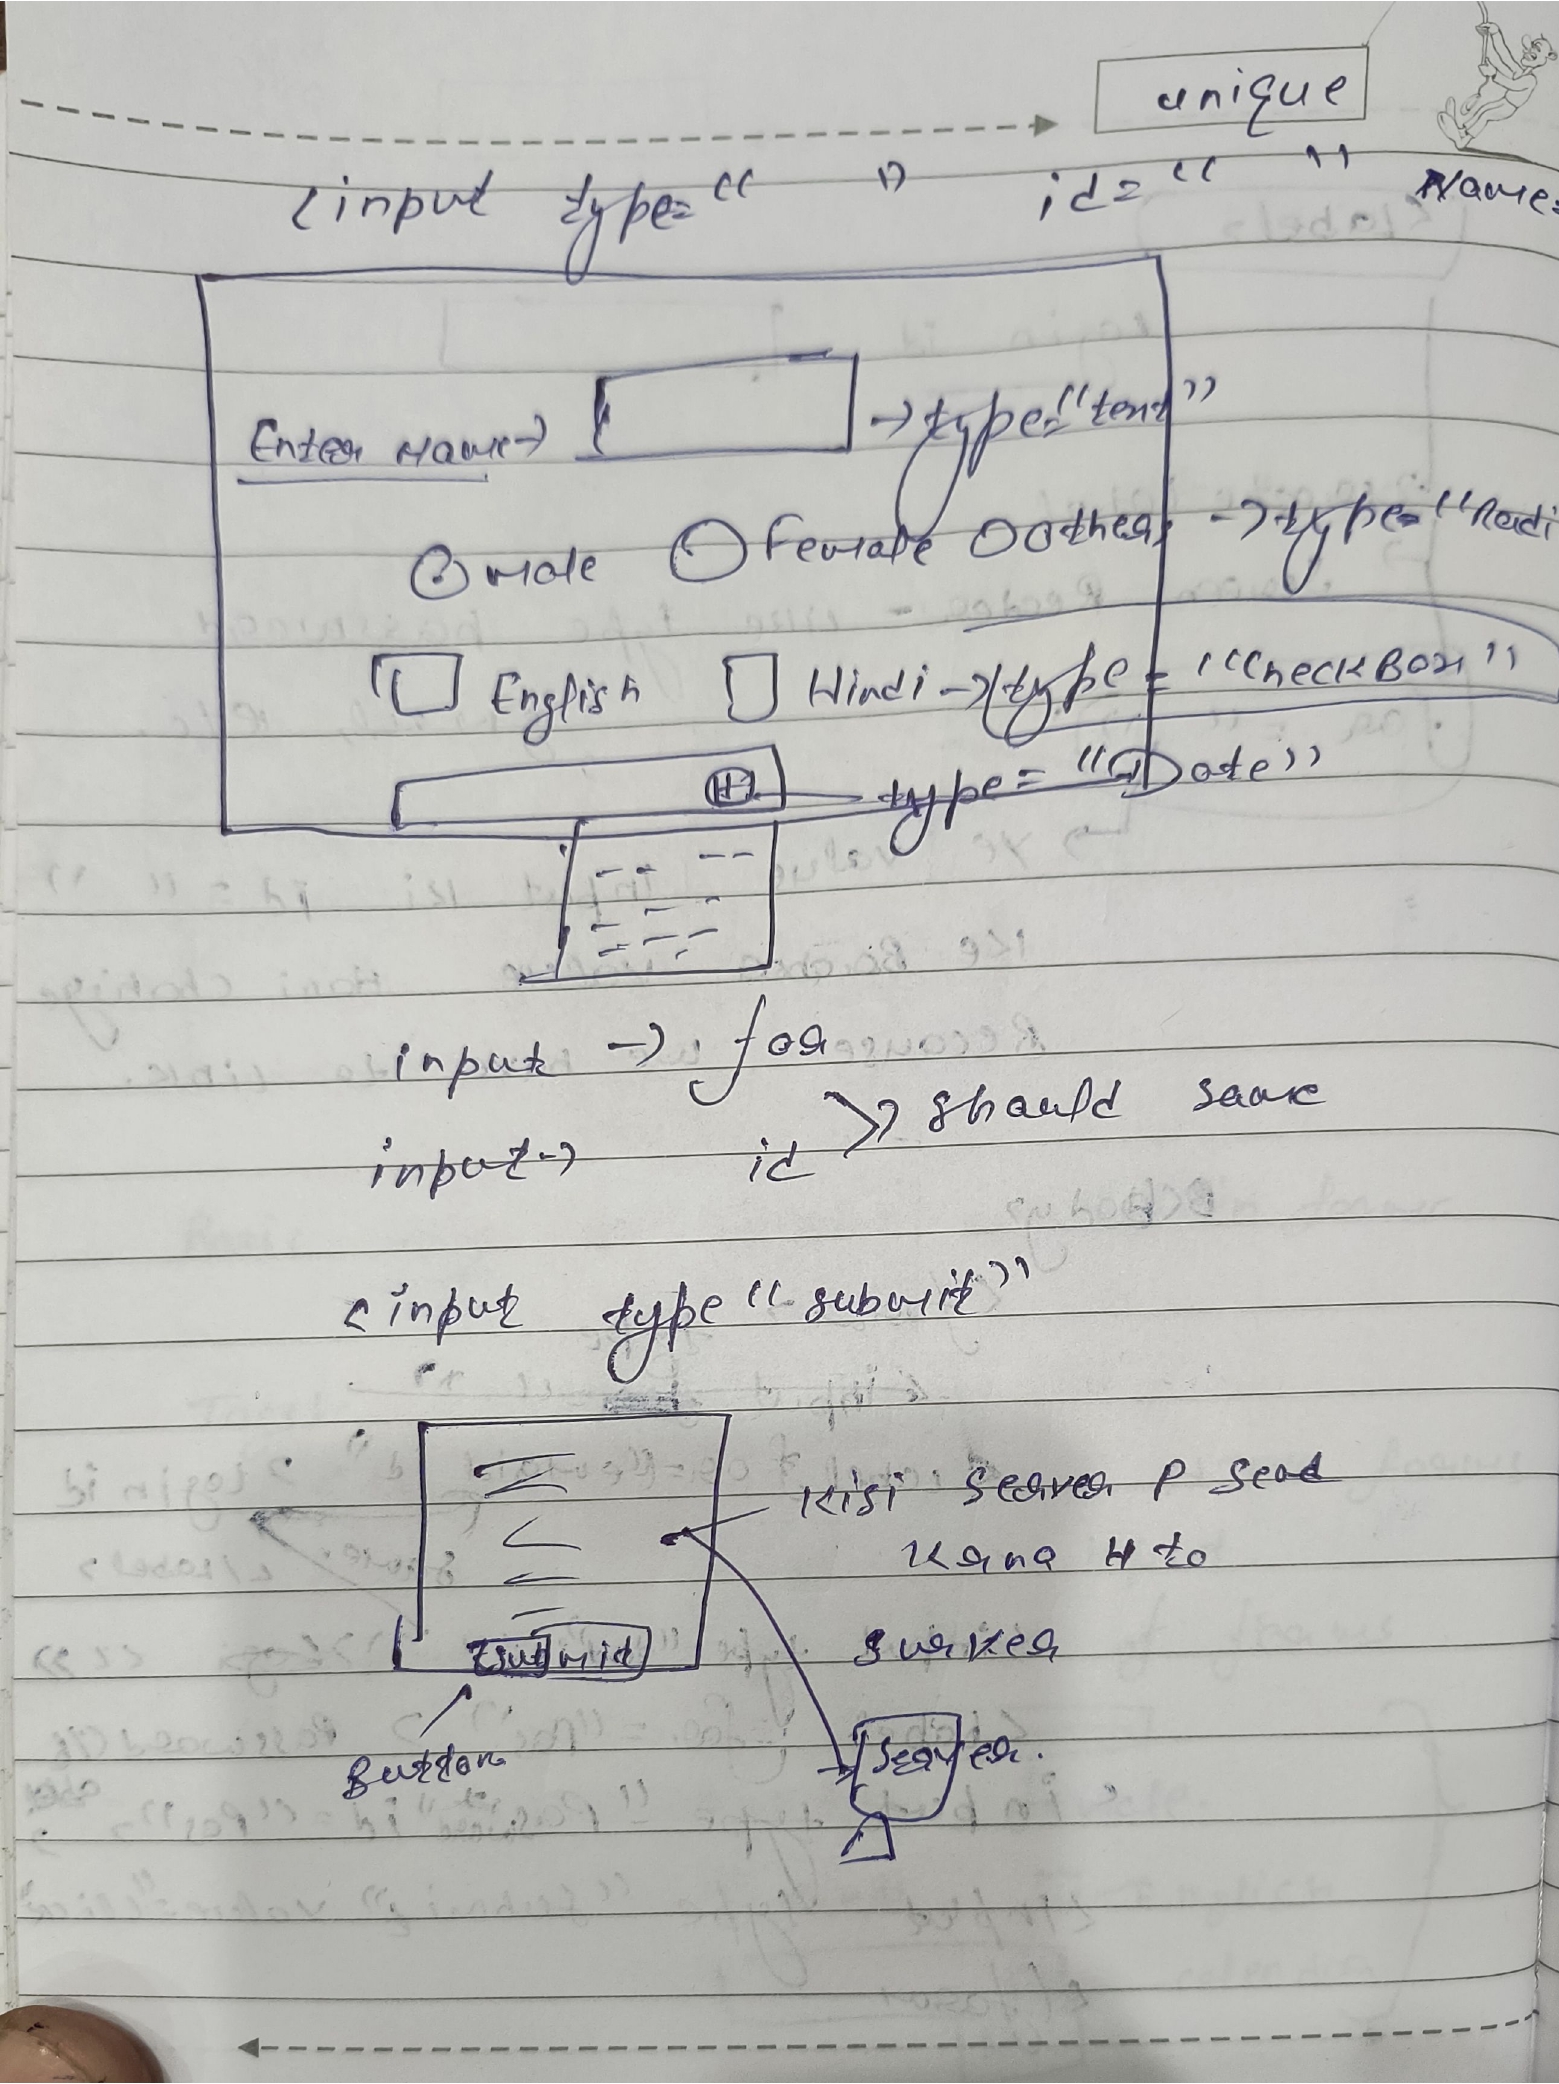 unique
<input type=" " id=" " Name=
Enter Name→ →type="text"
male Female Other →type="Radi
English Hindi →type="CheckBox"
type="Date"
input → for
should same
input→ id
<input type "submit"
Kisi Server P Send
Karna H to
Submit
Button
Server.